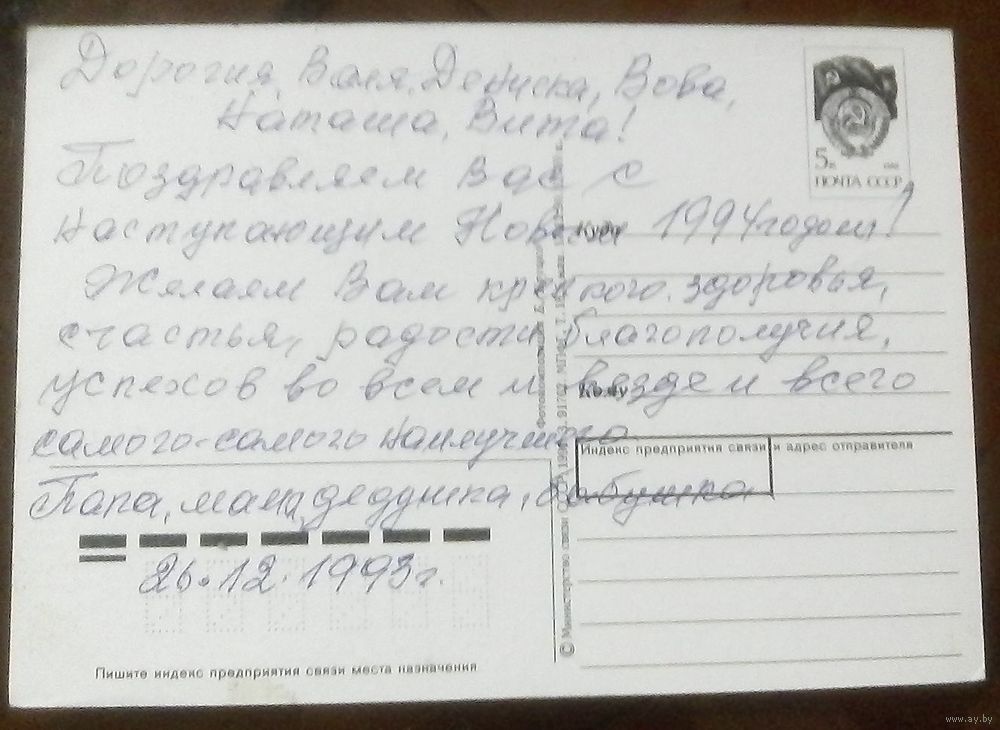 Дорогия, Валя, Дениска, Вова,
Наташа, Вита!
Поздравляем Вас с
наступающим Новым 1994 годом!
Желаем Вам крепкого здоровья,
счастья, радости, благополучия,
успехов во всем и везде и всего
самого-самого наилучшего
Папа, мама, дедушка, бабушка
26.12.1993г.
5к
ПОЧТА СССР
Куда
Кому
Индекс предприятия связи и адрес отправителя
Пишите индекс предприятия связи места назначения
© Министерство связи СССР
www.ay.by